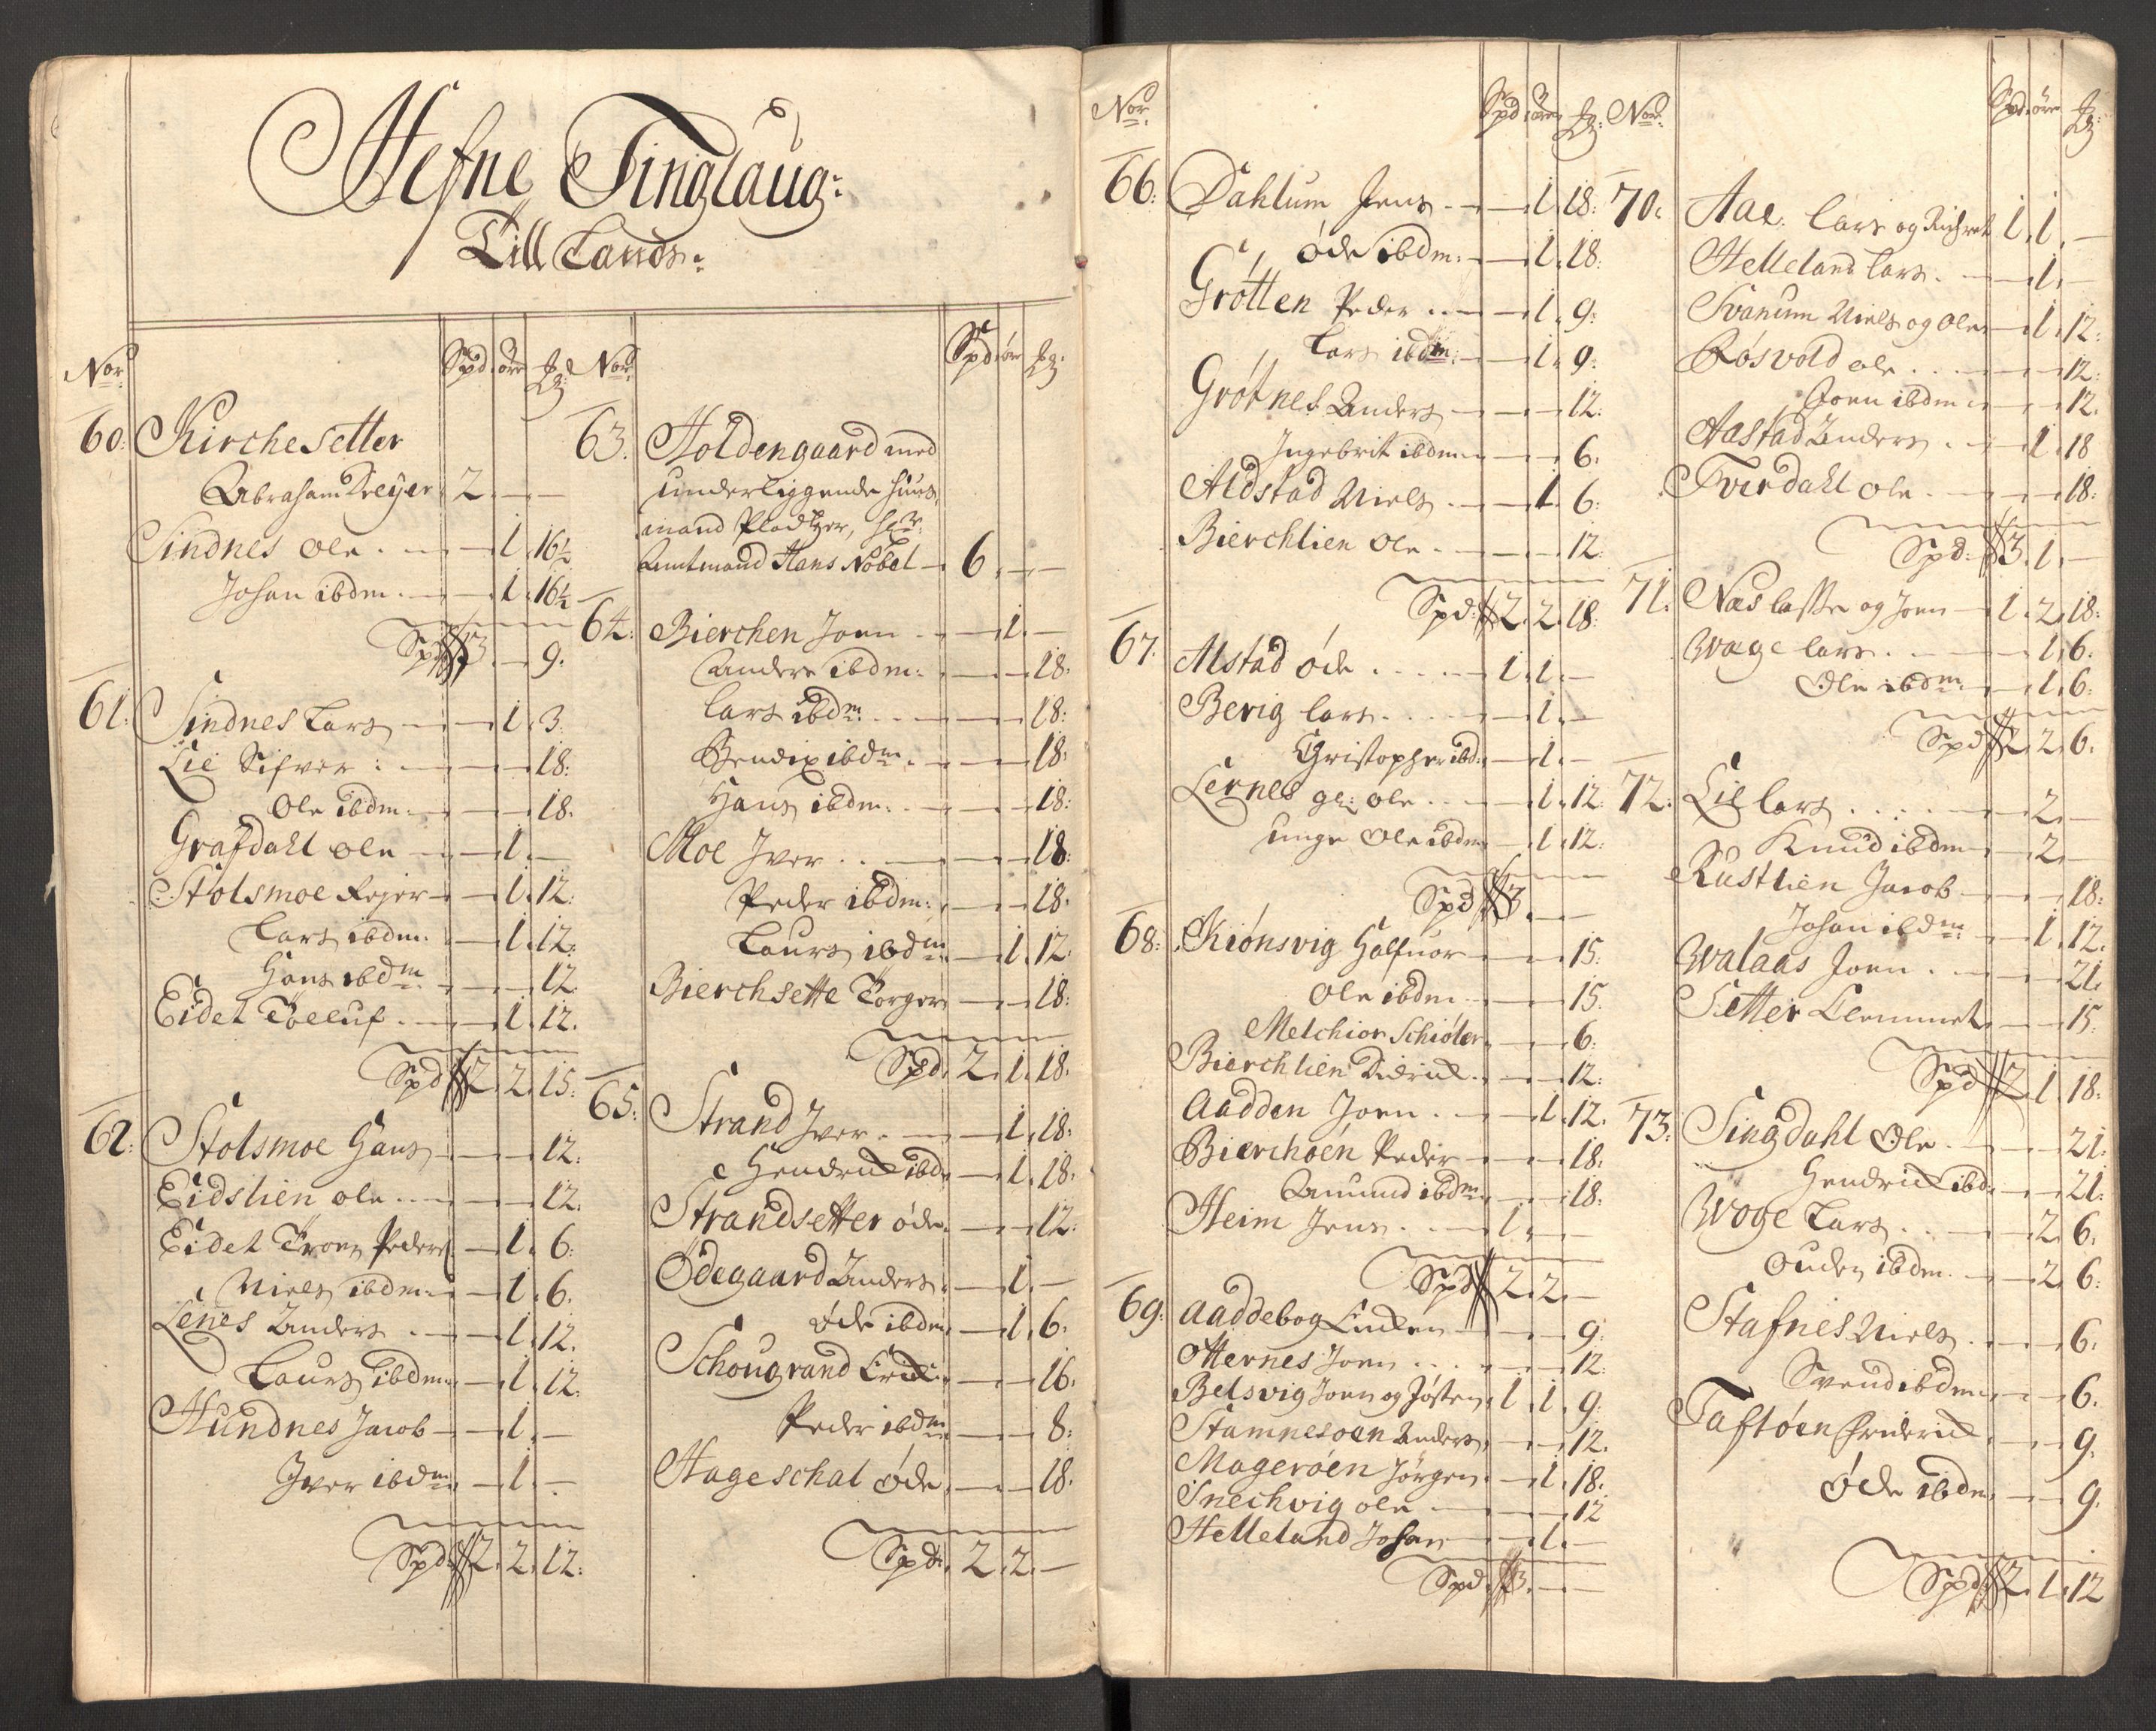 Hefne Tinglaug:
Till Lands:
Nor. Spd ører ₰
60. Kirchesetter
Abraham Dreyer 2 — —
Sindnes Ole — 1. 16½
Johan ibdm. — 1. 16½
Spd 3 — 9.
61. Sindnes Lars — 1. 3.
Lie Sifver — — 18.
Ole ibdm. — — 18.
Grafdahl Ole — 1. —
Stolsmoe Rejer — 1. 12.
Lars ibdm. — 1. 12.
Hans ibdm — — 12.
Eidet Tolluf — 1. 12.
Spd 2. 2. 15.
62. Stolsmoe Hans — — 12.
Eidslien Ole — — 12.
Eidet Troen Peders — 1. 6.
Niels ibdm. — 1. 6.
Lenes Anders — 1. 12.
Laurs ibdm. — 1. 12.
Hundnes Jacob — 1. —
Iver ibdm — 1. —
Spd 2. 2. 12.
Nor. Spd ører ₰
63. Holdengaard med
underliggende huus
mand Pladtzer, Hr.
Amtmand Hans Nobel — 6. — —
64. Bierchen Joen — 1. —
Anders ibdm. — — 18.
Lars ibdm. — — 18.
Bendix ibdm. — — 18.
Hans ibdm. — — 18.
Moe Iver — — 18.
Peder ibdm. — — 18.
Laurs ibdm — 1. 12.
Bierchsette Torger — — 18.
Spd. 2. 1. 18.
65. Strand Iver — 1. 18.
Hendrich ibd. — 1. 18.
Strandsetter øde — — 12.
Ødegaard Anders — 1. —
øde ibdm. — 1. 6.
Schougrand Erich — — 16.
Peder ibdm — — 8.
Hageschal øde — — 18.
Spd. 2. 2. —
Nor. Spd ører ₰
66. Dahlum Jens — 1. 18.
øde ibdm. — 1. 18.
Grøtten Peder — 1. 9.
Lars ibdm. — 1. 9.
Grøtnes Anders — — 12.
Ingebrit ibdm — — 6.
Aldstad Niels — 1. 6.
Bierchlien Ole — — 12.
Spd. 2. 2. 18.
67. Alstad øde 1. 1. —
Berig Lars — 1. —
Christopher ibd. — 1. —
Lernes gl: Ole — 1. 12.
unge Ole ibdm — 1. 12.
Spd 3. — —
68. Kiønsvig Halfuor — — 15.
Ole ibdm — — 15.
Melchior Schiøler — — 6.
Bierchlien Didrich — — 12.
Aadden Joen — 1. 12.
Bierchøen Peder — — 18.
Amund ibdm. — — 18.
Heim Jens 1. — —
Spd 2. 2. —
69. Aaddebog — — 9.
Otternes Joen — — 12.
Belsvig Joen og Josten 1. 1. 9.
Stamnesøen Anders — — 12.
Magerøen Jørgen — 1. 18.
Snechvig Ole — — 12
Helleland Johan — 1. —
Spd. 3. — —
Nor. Spd ører ₰
70. Aae Lars og 1. 1. —
Helleland Lars — 1. —
Svanum Niels og Ole — 1. 12.
Røsvold Ole — — 12.
Joen ibdm — — 12.
Aastad Anders — 1. 18
Tverdahl Ole — — 18.
Spd. 3. 1. —
71. Næs Lasse og Joen 1. 2. 18.
Waage Lars — 1. 6.
Ole ibdm — 1. 6.
Spd 2. 2. 6.
72. Lie Lars — 2. —
Knud ibdm — 2. —
Rustlien Jacob — — 18.
Johan ibdm. — 1. 12.
Walaas Joen — — 21.
Setter Clemmet — — 15.
Spd 2 1 18.
73. Singdahl Ole — — 21.
Hendrich ibd. — — 21.
Woge Lars — 2. 6.
Ouden ibdm. — 2. 6.
Stafnes Niels — — 6.
Svend ibdm. — — 6.
Taftøen Friderich — — 9.
Øde ibdm. — — 9.
Spd 2. 1. 12